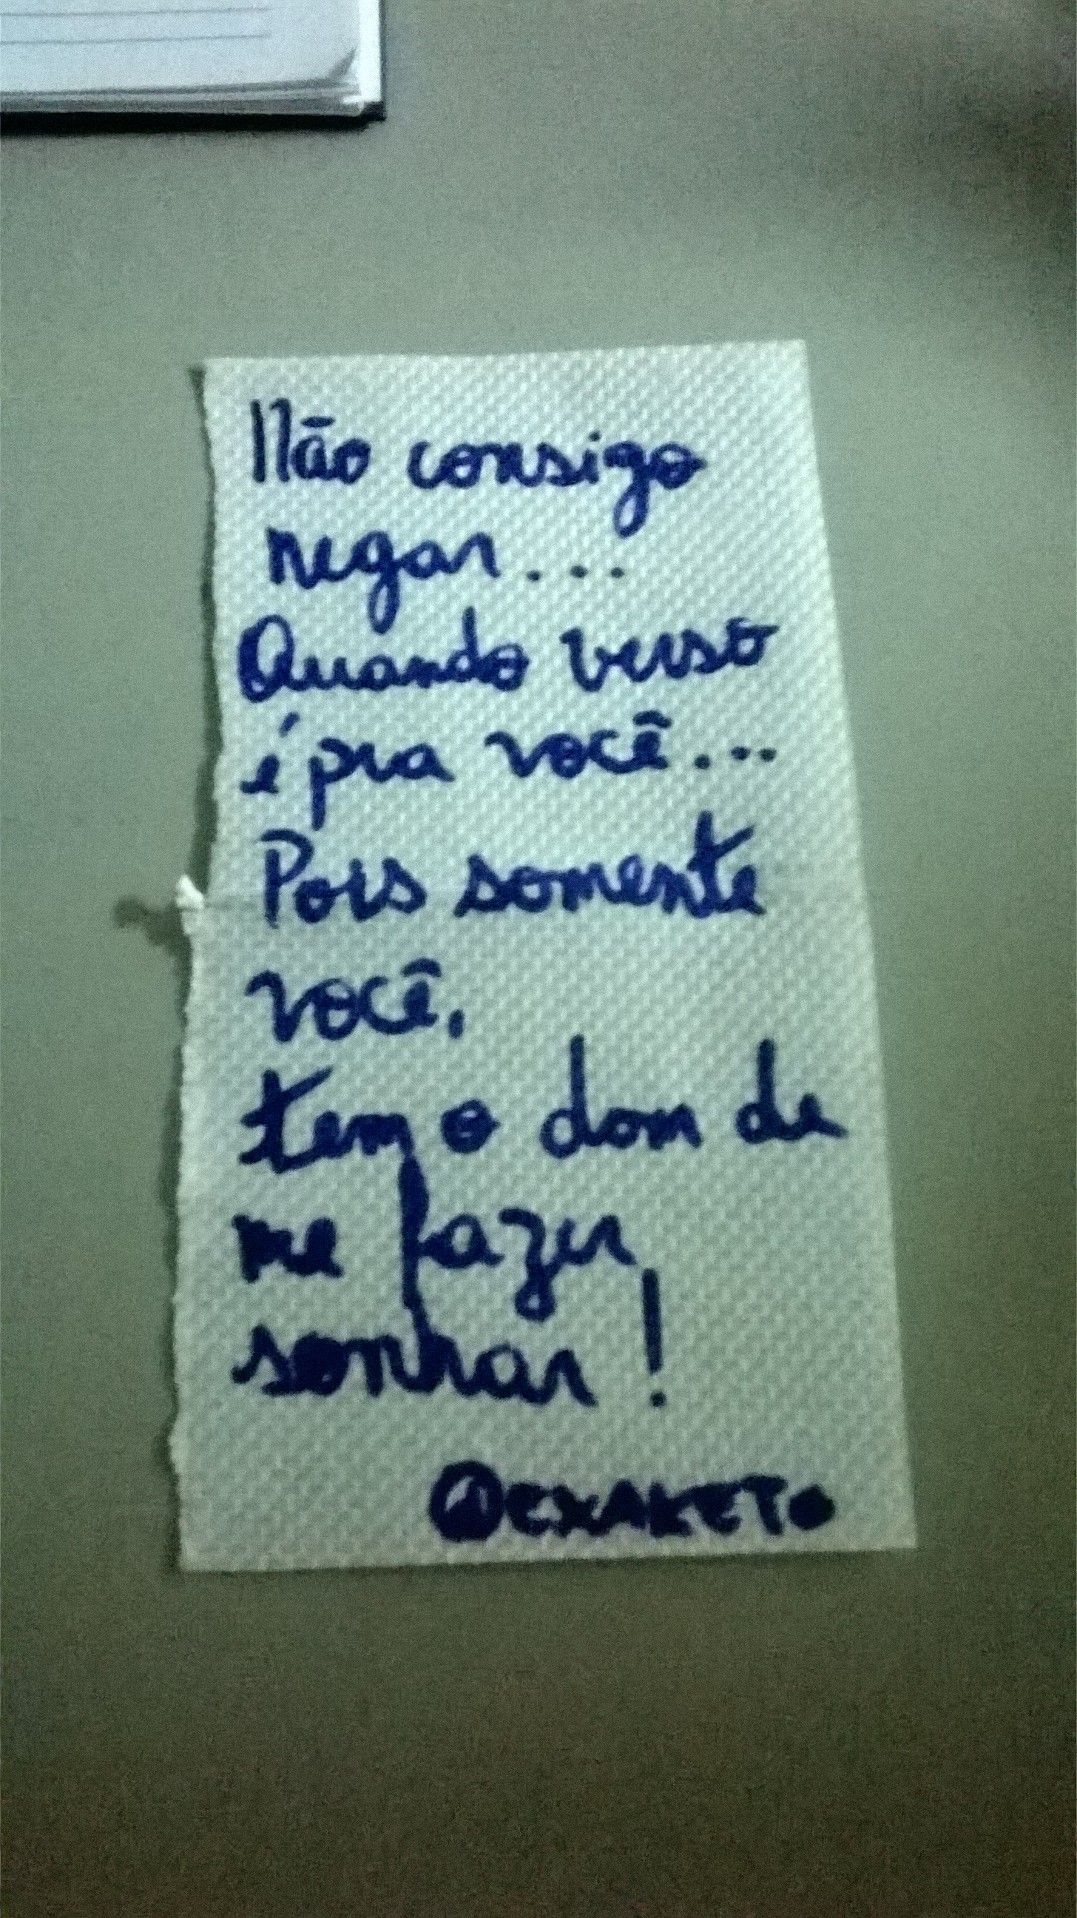 Não consigo
negar...
Quando verso
é pra você...
Pois somente
você,
tem o dom de
me fazer
sonhar!
@EXAKETO